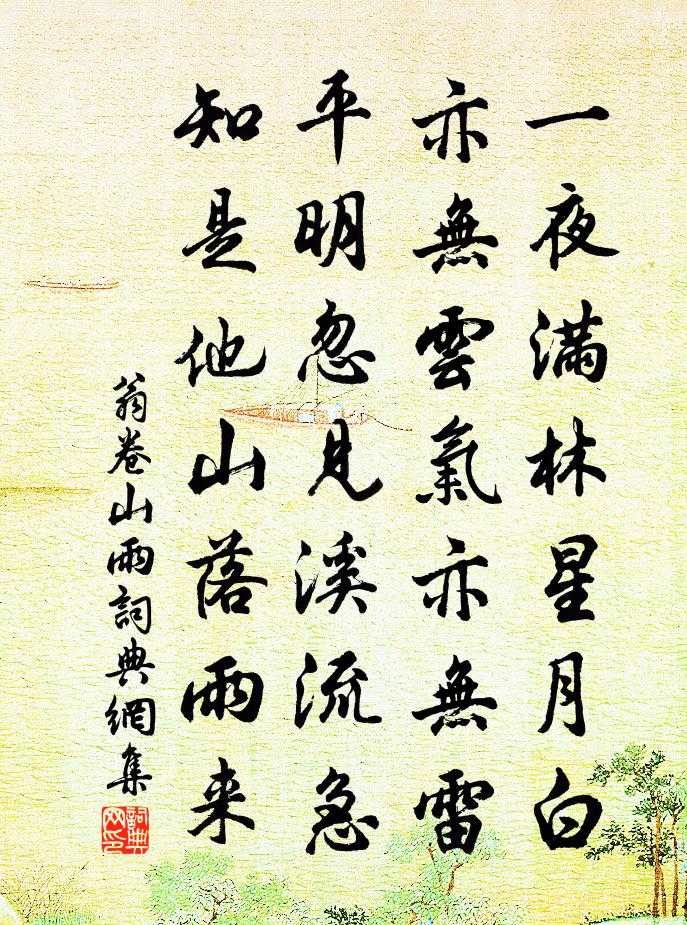 一夜满林星月白
亦無雲氣亦無雷
平明忽見溪流急
知是他山落雨来
翁卷山雨詞典網集
詞典
网印